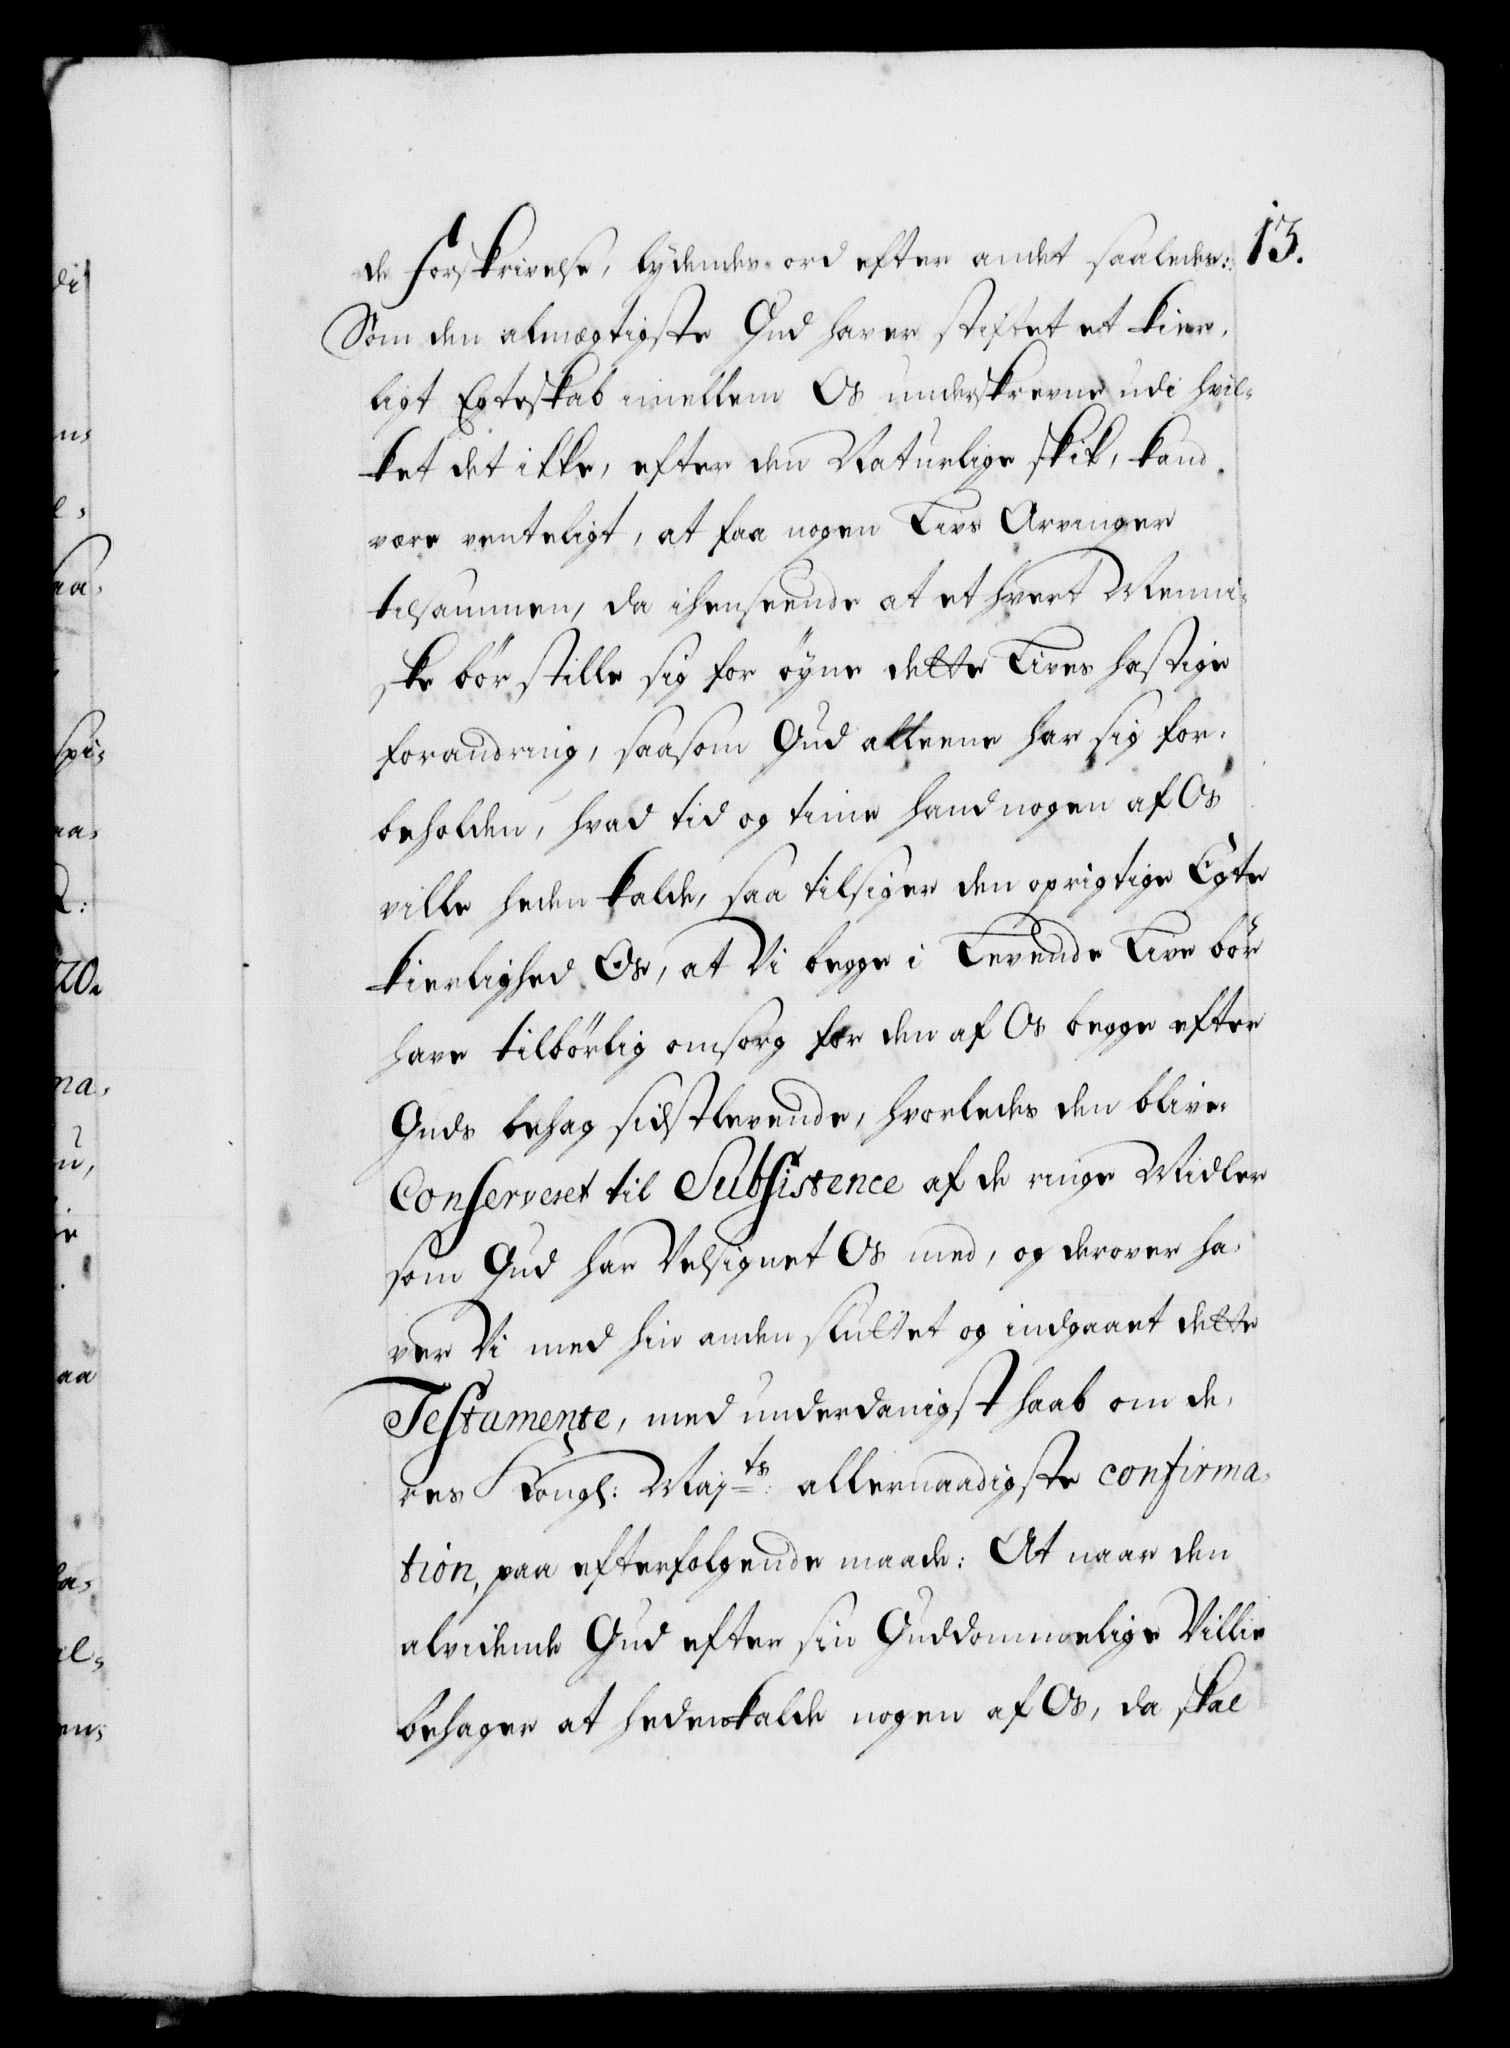 13.
de forskrivelse, lydendes ord efter andet saaledes:
Som den almægtigste Gud haver stiftet et kier-
ligt Egteskab imellem Os underskrevne udi hvil-
ket det ikke, efter den Naturlige skik, kand
være venteligt, at faa nogen Livs Arvinger
tilsammen, da ihenseende at et hvert Menni-
ske bör stille sig for öyne dette Lives hastige
forandring, saasom Gud alleene har sig for-
beholden, hvad tid og time hand nogen af Os
ville heden kalde, saa tilsiger den oprigtige Egte
kierlighed Os, at Vi begge i Levende Live bör
have tilbörlig omsorg for den af Os begge efter
Guds behag sidstlevende, hvorledes den bliver
Conserveret til Subsistence af de ringe Midler
som Gud har Velsignet Os med, og derover ha-
ver Vi med hin anden sluttet og indgaaet dette
Testamente, med underdanigst haab om de-
res Kongl: Maj:ts allernaadigste confirma-
tion, paa efterfolgende maade: At naar den
alvidende Gud efter sin Guddommelige Villie
behager at hedenkalde nogen af Os, da skal